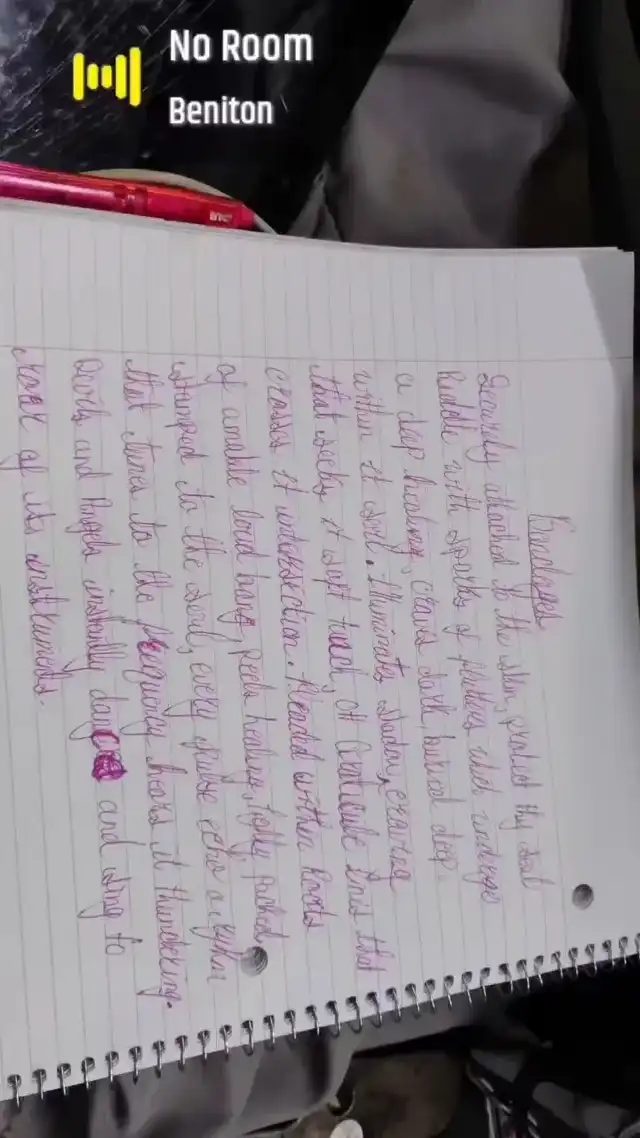 No Room
Beniton
Bandages
Securely attached to the skin, protect thy soul
Riddle with sparks of flutters which undergo
a deep healing, craves dark buried deep
within it soul. Illuminates shadow, craving
that seeks it soft touch, of Graticule lines that
creases it intersection. Blended within Roots
of amiable loud bang, peels healing, tightly packed,
stamped to the soul, every pulse echo a rythm
that tunes to the frequency hears it thundering.
Devils and Angels instantly dance and sing to
roar of its instruments.